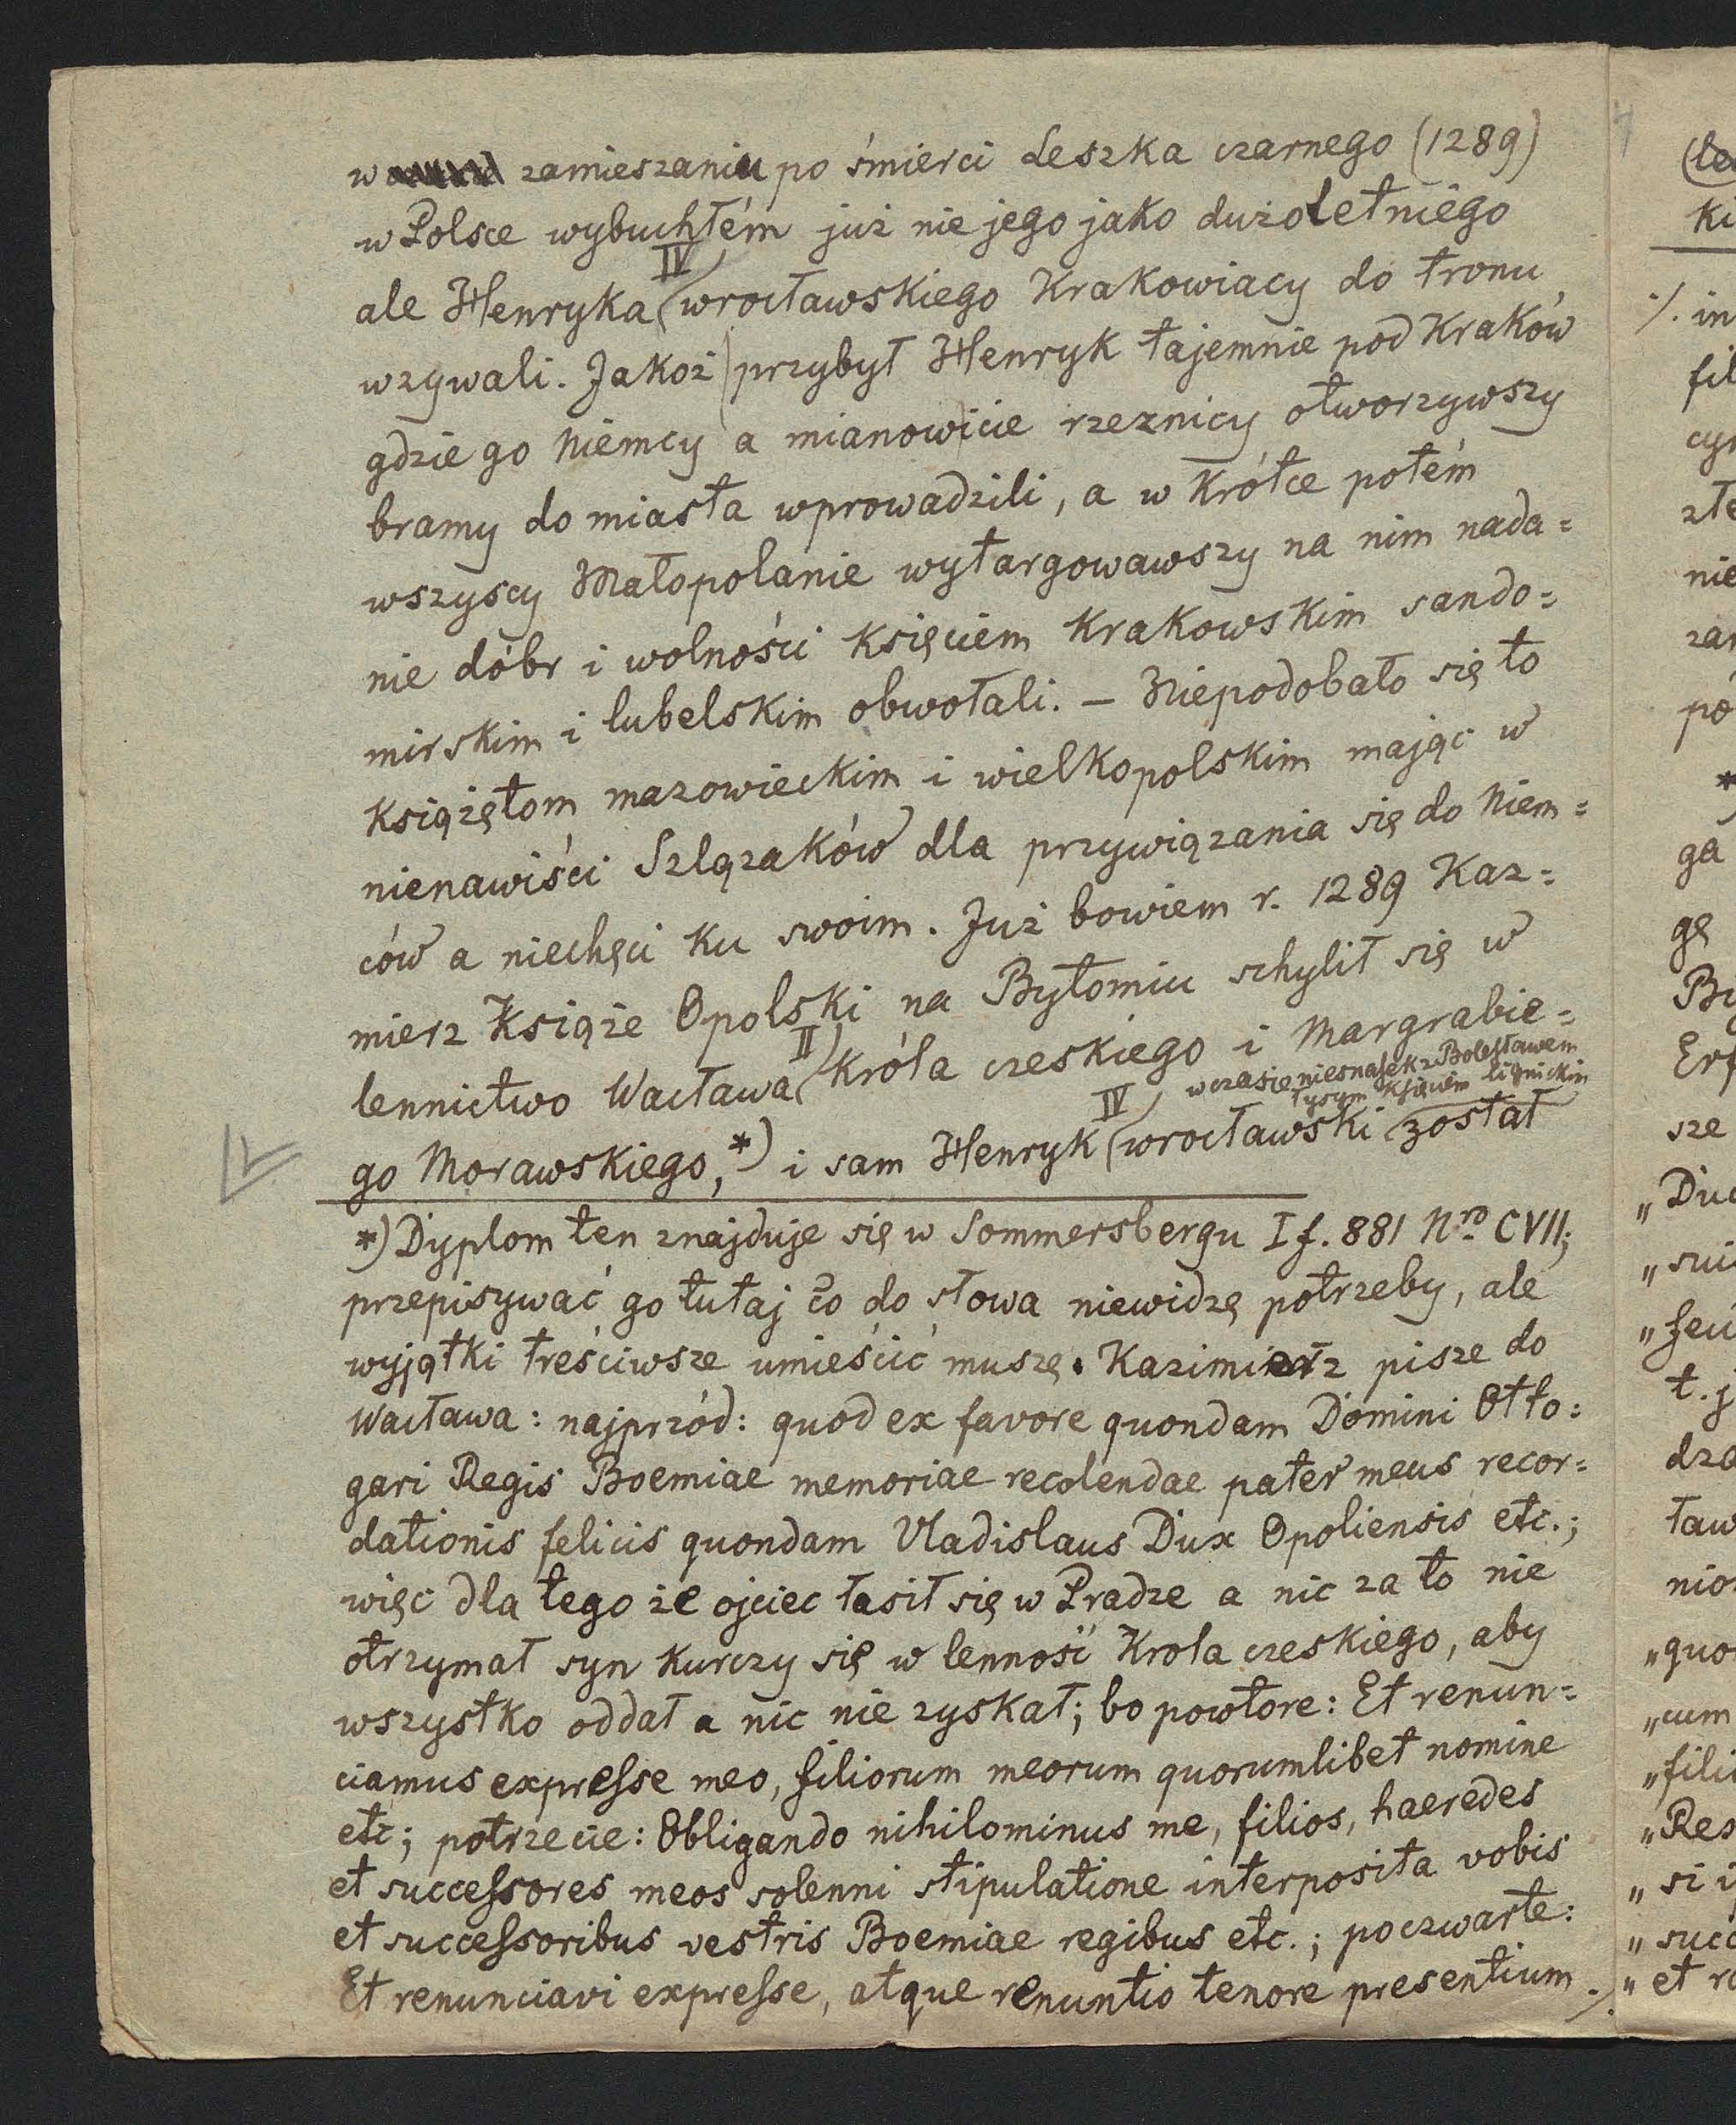 w zamieszaniu po śmierci Leszka czarnego (1289)
w Polsce wybuchłém już nie jego jako dużoletniego
ale Henryka IV wrocławskiego Krakowiacy do tronu
wzywali. Jakoż przybył Henryk tajemnie pod Kraków
gdzie go Niemcy a mianowicie rzeznicy otworzywszy
bramy do miasta wprowadzili, a w krótce potém
wszyscy Małopolanie wytargowawszy na nim nada=
nie dóbr i wolności Księciem Krakowskim sando=
mirskim i lubelskim obwołali. – Niepodobało się to
Książętom mazowieckim i wielkopolskim mając w
nienawiści Szlązaków dla przywiązania się do Niem=
ców a niechęci ku swoim. Już bowiem r. 1289 Kaz=
mierz Książe Opolski na Bytomiu schylił się w
lennictwo Wacława II Króla czeskiego i Margrabie=
go Morawskiego,*) i sam Henryk IV wrocławski w czasie niesnasek z Bolesławem
łysym Księciem lignickim został
*) Dyplom ten znajduje się w Sommersbergu I f. 881 Nro CVII;
przepisywać go tutaj co do słowa niewidzę potrzeby, ale
wyjątki treściwsze umieścić muszę. Kazimierz pisze do
Wacława: najprzód: quod ex favore quondam Domini Otto=
gari Regis Boemiae memoriae recolendae pater meus recor=
dationis felicis quondam Vladislaus Dux Opoliensis etc.;
więc dla tego że ojciec łasił się w Pradze a nic za to nie
otrzymał syn kurczy się w lenność Krola czeskiego, aby
wszystko oddał a nic nie zyskał; bo powtore: Et renun=
ciamus expresse meo, filiorum meorum quorumlibet nomine
etc; potrzecie: Obligando nihilominus me, filios, haeredes
et successores meos solenni stipulatione interposita vobis
et successoribus vestris Boemiae regibus etc.; poczwarte:
Et renunciavi expresse, atque renuntio tenore presentium ./.
ki
./. in
ga
gę
sze
t. j
"quo
"cum
"si
"et